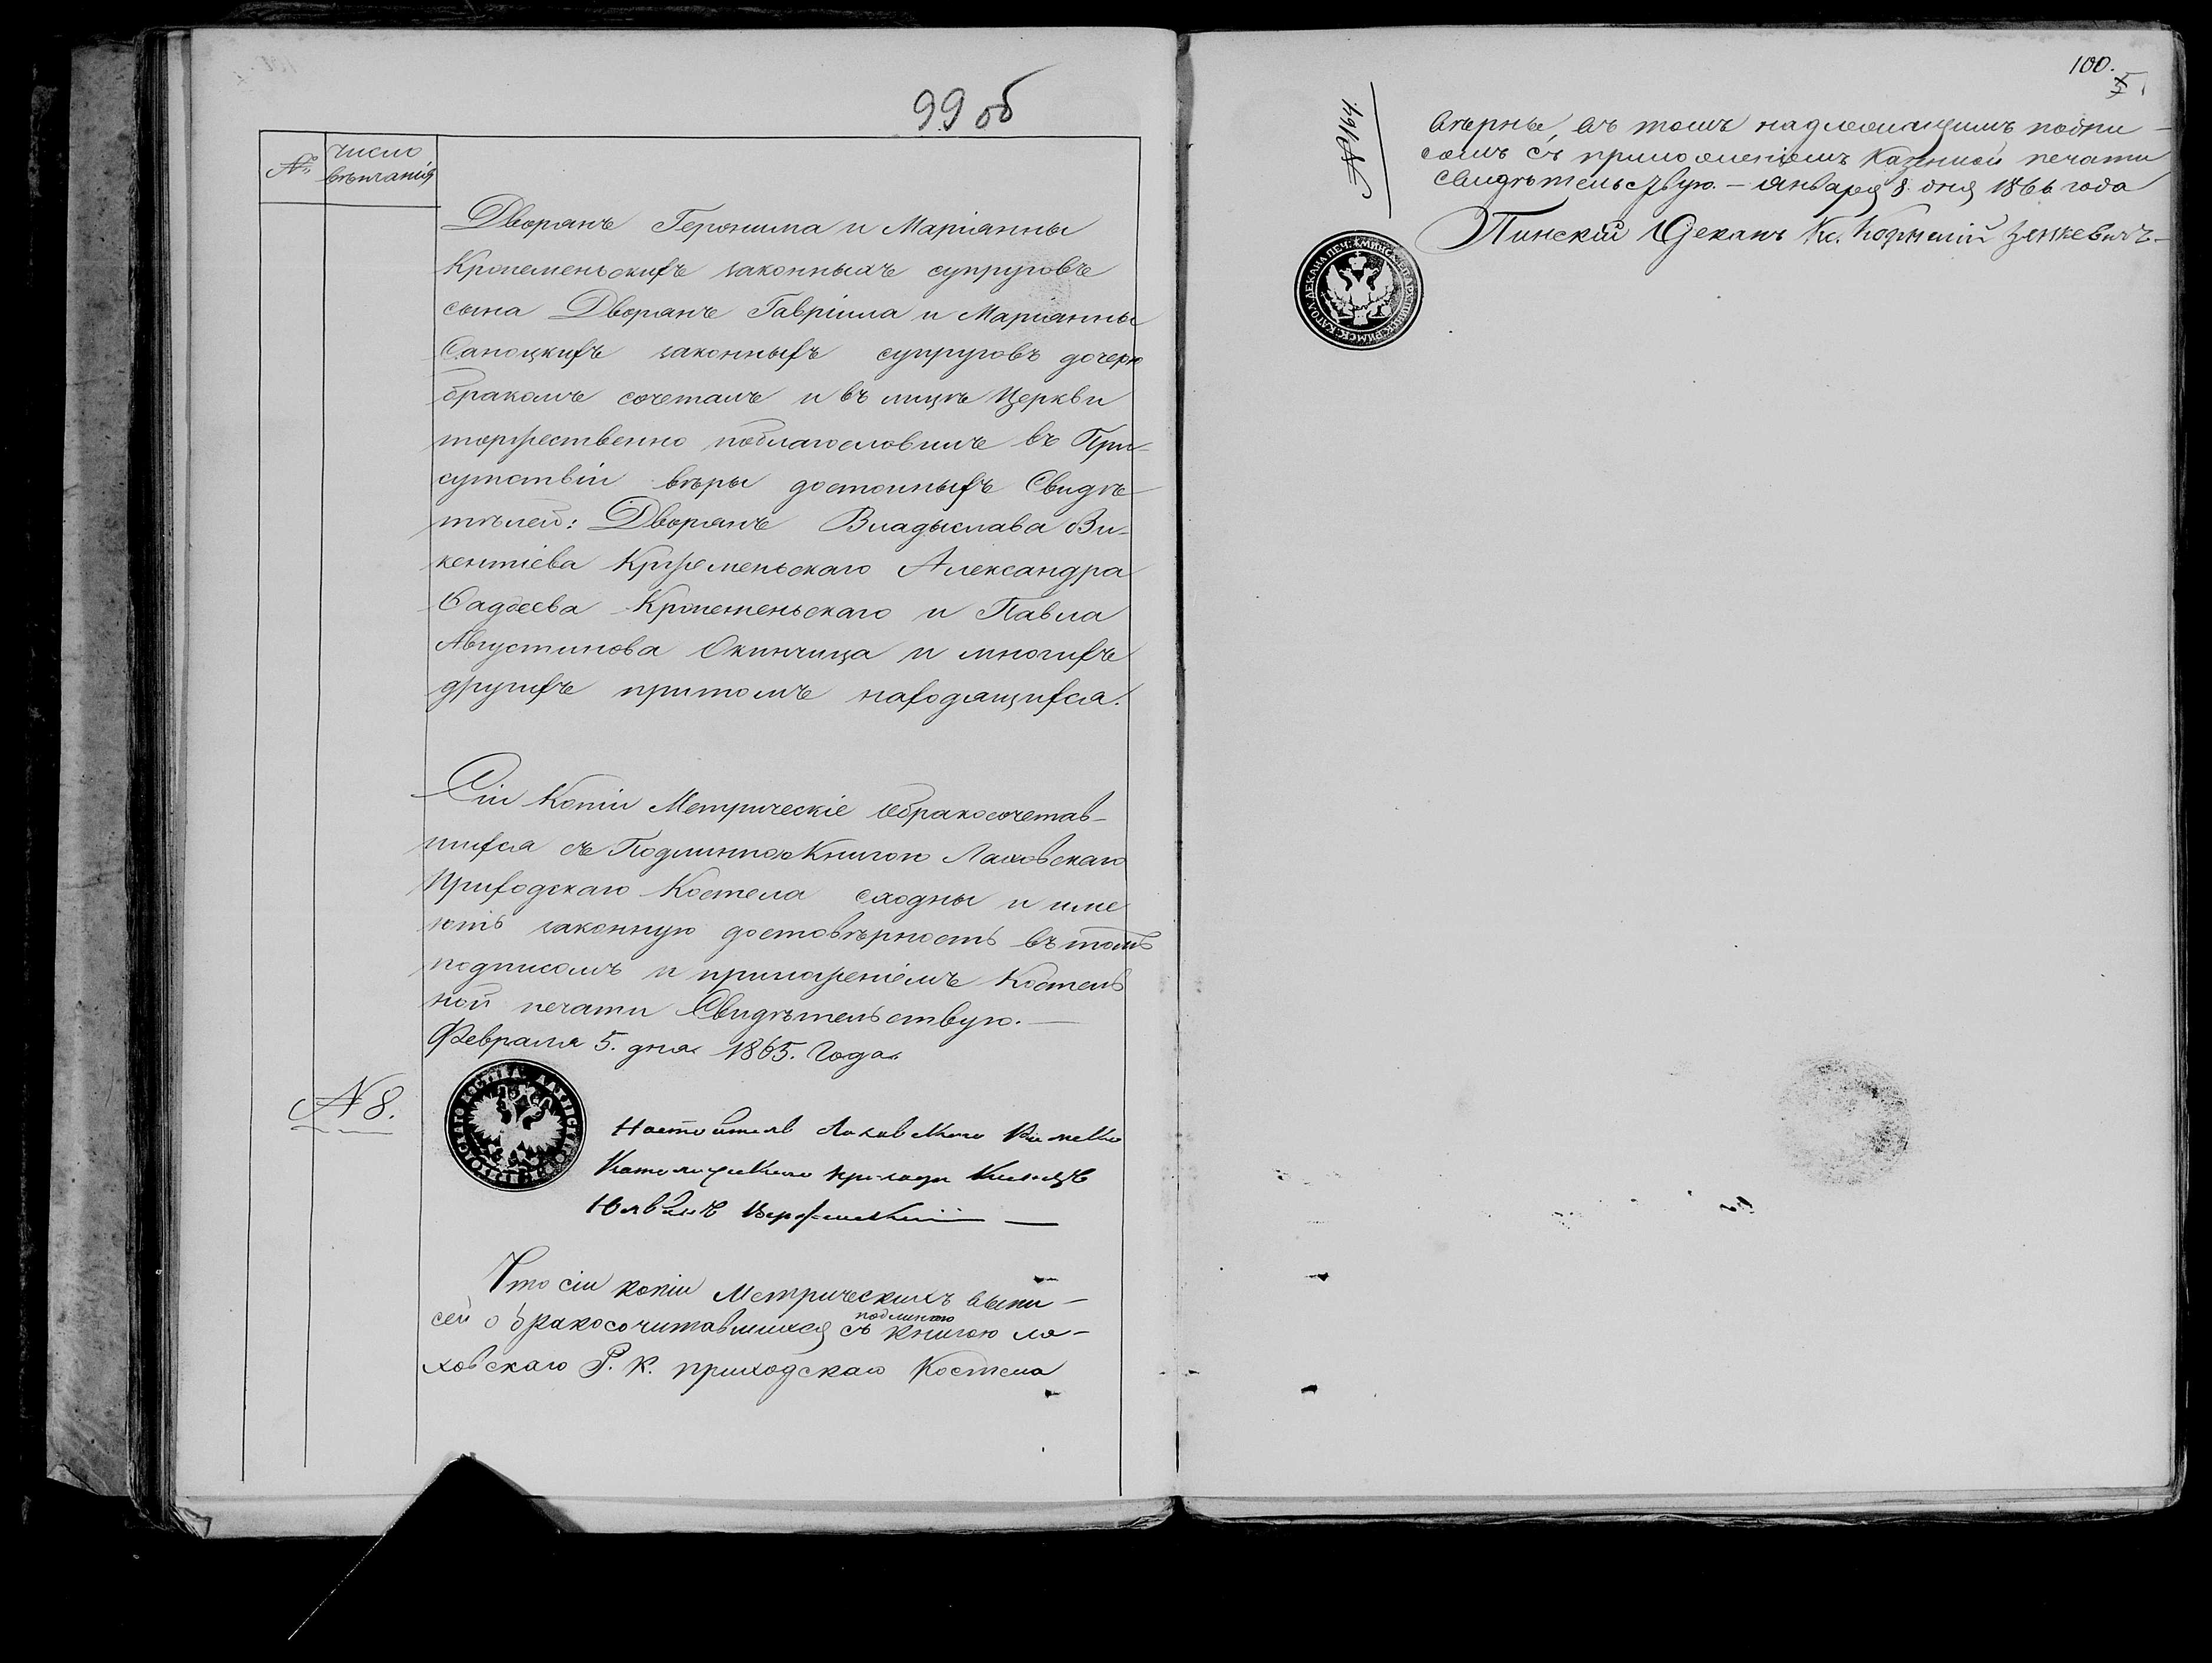 99 об
№
число
вѣнчанія
Дворянъ Геронима и Маріянны
Кржеменьскихъ законныхъ супруговъ
сына Дворянъ Гавріила и Маріянны
Саноцкихъ законныхъ супруговъ дочерю
бракомъ сочеталъ и въ лицѣ Церкви
торжественно поблагословилъ въ При-
сутствіи вѣры достойныхъ Свидѣ
тѣлей: Дворянъ Владыслава Ви-
кентіева Кржеменьскаго Александра
Фадеева Кржеменьскаго и Павла
Августинова Окинчица и многихъ
другихъ притомъ находящихся.
Сіи Копіи Метрическіе Обракосочетав-
шихся съ Подлинною Книгою Лаховскаго
Приходскаго Костела сходны и име
ютъ законную достовѣрность въ томъ
подписомъ и приложеніемъ Костель
ной печати Свидѣтельствую.—
Февраля 5. дня 1865. Года
№ 8.
Настоятель Лаховскаго Римско
Католическаго прихода Ксендзъ
Что сіи копіи Метрическихъ выпи-
сей о бракосочитавшихся съ подлинною книгою ла-
ховскаго Р. К. приходскаго Костела
100.
№ 194
вѣрны, въ томъ надлежащимъ подпи-
сомъ съ приложеніемъ Казенной печати
свидѣтельствую.— Января 8 дня 1866 года
Пинскій Деканъ Кс. Корнелій Зенкевичъ—